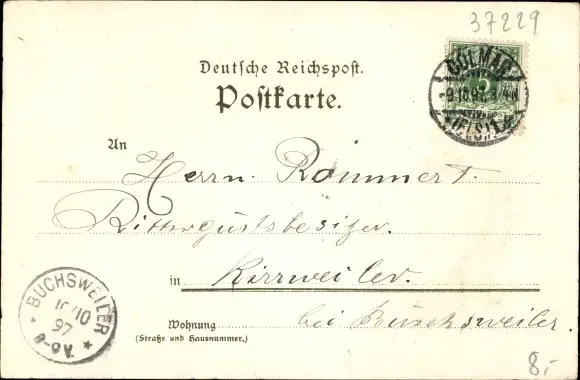 37229
Deutsche Reichspost.
Postkarte.
COLMAR
An
Herrn Rommert.
Rittergutsbesitzer
in Kirrweiler.
BUCHSWEILER
10/10
97
Wohnung bei Buchsweiler.
(Straße und Hausnummer.)
8,-